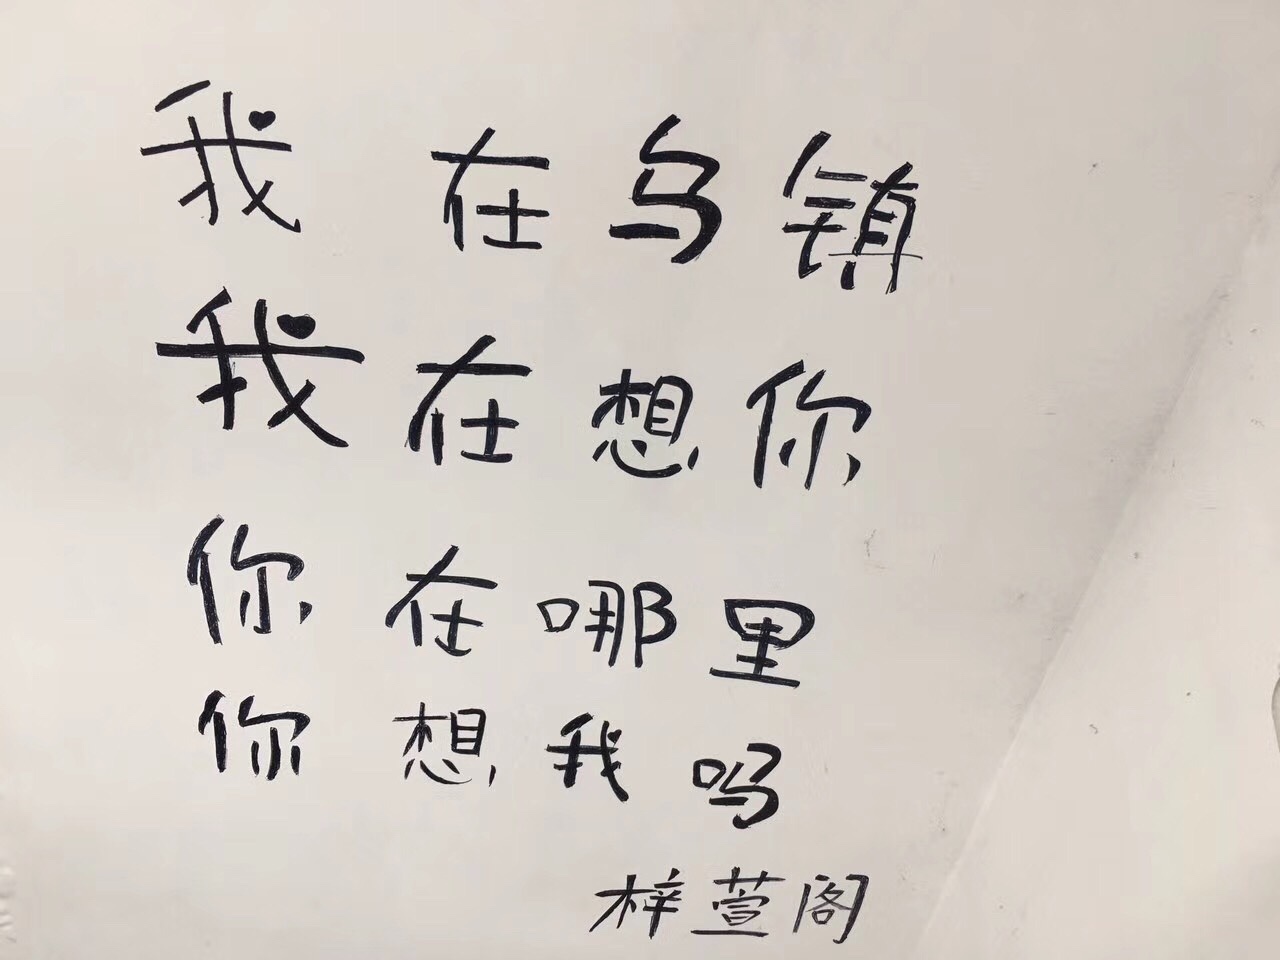 我在乌镇
我在想你
你在哪里
你想我吗
梓萱阁